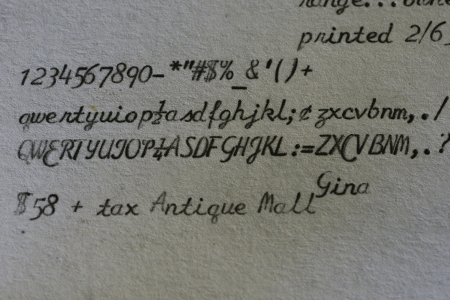 range...
printed 2/6
1234567890-*"#$%_&'()+
qwertyuiop½asdfghjkl;¢zxcvbnm,./
QWERTYUIOP¼ASDFGHJKL:=ZXCVBNM,.?
Gina
$58 + tax Antique Mall